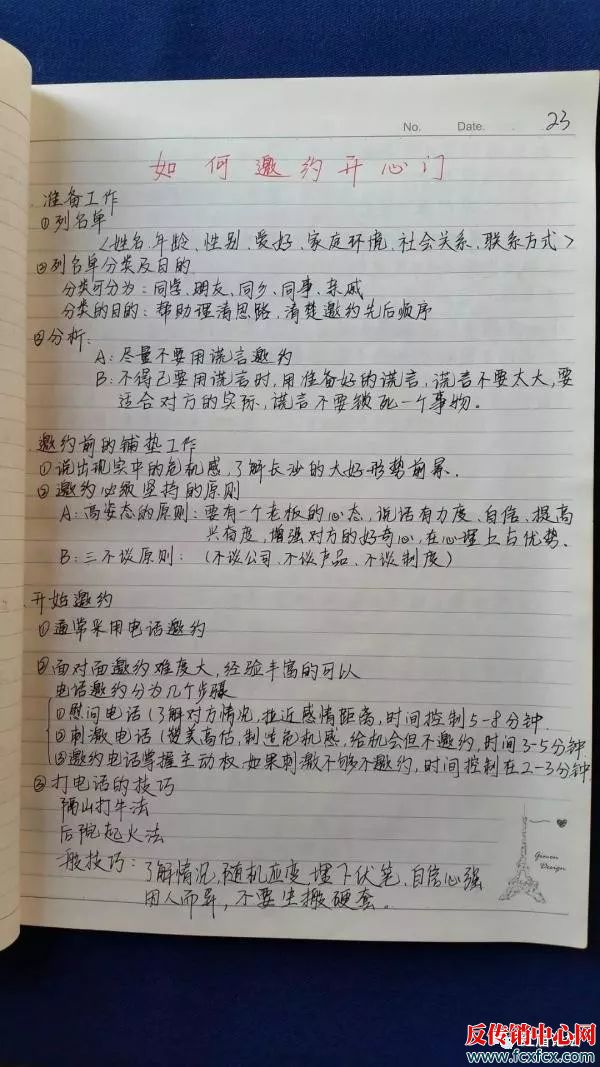 No. Date. 23
如何邀约开心门
准备工作
①列名单
<姓名、年龄、性别、爱好、家庭环境、社会关系、联系方式>
②列名单分类及目的
分类可分为:同学、朋友、同乡、同事、亲戚
分类的目的:帮助理清思路,清楚邀约先后顺序
③分析:
A:尽量不要用谎言邀约
B:不得己要用谎言时,用准备好的谎言,谎言不要太大,要
适合对方的实际,谎言不要锁死一个事物。
邀约前的铺垫工作
①说出现实中的危机感,了解长沙的大好形势前景.
②邀约必须坚持的原则
A:高姿态的原则:要有一个老板的心态,说话有力度、自信、提高
兴奋度,增强对方的好奇心,在心理上占优势.
B:三不谈原则:(不谈公司、不谈产品、不谈制度)
开始邀约
①通常采用电话邀约
②面对面邀约难度大,经验丰富的可以
电话邀约分为几个步骤
①慰问电话(了解对方情况,拉近感情距离,时间控制5-8分钟.
②刺激电话(赞美高估,制造危机感,给机会但不邀约,时间3-5分钟
③邀约电话掌握主动权.如果刺激不够不邀约,时间控制在2-3分钟
③打电话的技巧
隔山打牛法
后院起火法
一般技巧:了解情况,随机应变.埋下伏笔、自信心强
因人而异,不要生搬硬套。
Design
反传销中心网
www.fcxfcx.com